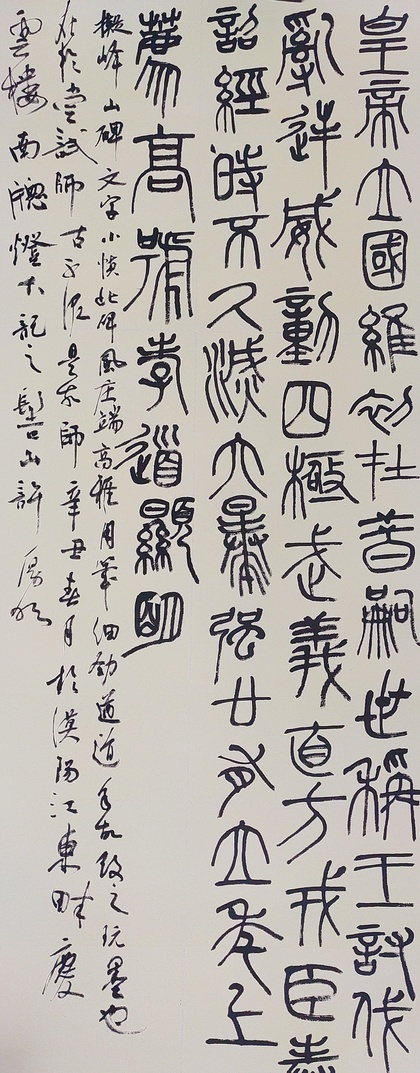 皇帝立國維初在昔嗣世稱王討伐
亂逆威動四極武義直方戎臣奉
詔經時不久滅六暴强廿有六年上
薦高號孝道顯明
擬峰山碑文字小此碑風度端高雅用筆細勁遒故致之玩墨也
於嘗試師古不泥是師辛丑春月於漠陽江東畔慶
雲樓南牕燈下記之髻山許